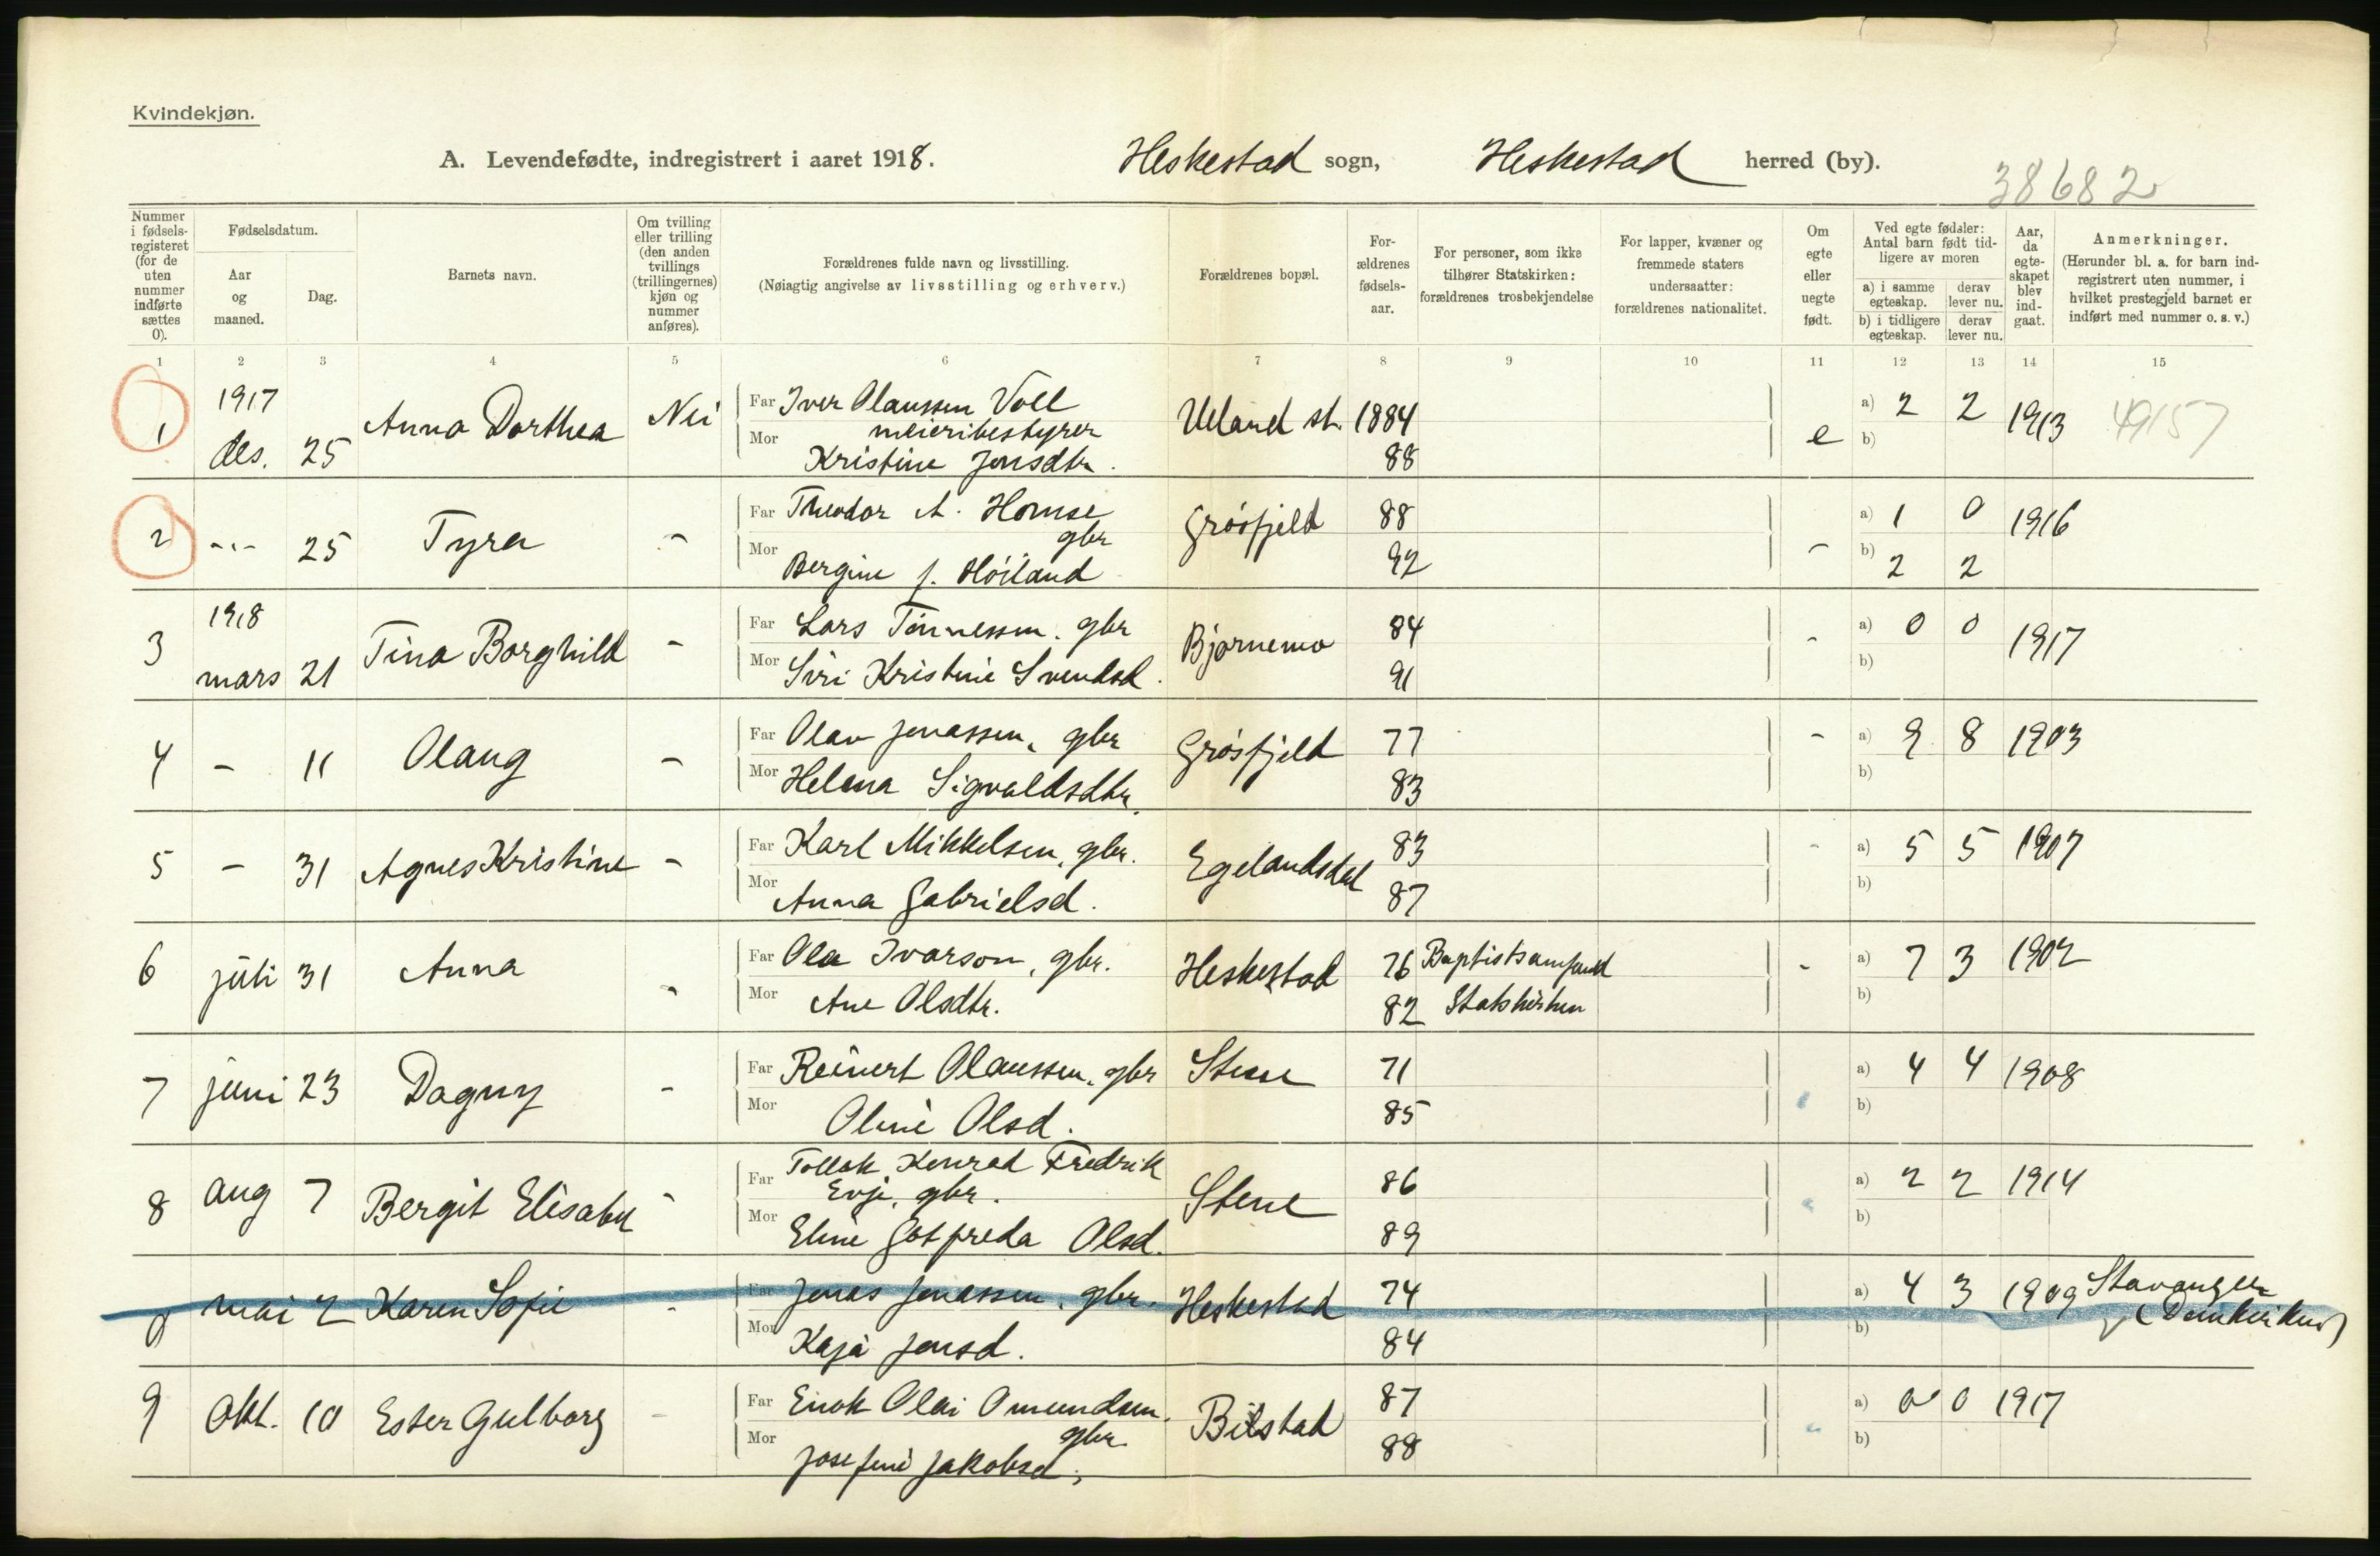 Kvindekjøn.
A. Levendefødte, indregistrert i aaret 1918. Heskestad sogn, Heskestad herred (by).
38682
Nummer i fødsels-registeret (for de uten nummer indførte sættes 0).
Fødselsdatum.
Aar og maaned.
Dag.
Barnets navn.
Om tvilling eller trilling (den anden tvillings (trillingernes) kjøn og nummer anføres).
Forældrenes fulde navn og livsstilling.
(Nøiagtig angivelse av livsstilling og erhverv.)
Forældrenes bopæl.
For-ældrenes fødsels-aar.
For personer, som ikke tilhører Statskirken: forældrenes trosbekjendelse
For lapper, kvæner og fremmede staters undersaatter: forældrenes nationalitet.
Om egte eller uegte født.
Ved egte fødsler: Antal barn født tid-ligere av moren
a) i samme egteskap. derav lever nu.
b) i tidligere egteskap. derav lever nu.
Aar, da egte-skapet blev ind-gaat.
Anmerkninger.
(Herunder bl. a. for barn ind-registrert uten nummer, i hvilket prestegjeld barnet er indført med nummer o. s. v.)
1 2 3 4 5 6 7 8 9 10 11 12 13 14 15
1 1917 des. 25 Anna Dorthea Nei
Far Iver Olaussen Voll Ueland st. 1884 a) 2 2 1913 49157
meieribestyrer
Mor Kristine Jonsdtr. 88 e b)
2 -"- 25 Tyra -
Far Theodor A. Homse Grösfjeld 88 a) 1 0 1916
gbr
Mor Bergine f. Höiland 92 - b) 2 2
3 1918 mars 21 Tina Borghild -
Far Lars Tönnessen. gbr Bjørnemo 84 - a) 0 0 1917
Mor Siri Kristine Svendsd. 91 b)
4 - 11 Olaug -
Far Olav Jonassen, gbr Grösfjeld 77 - a) 9 8 1903
Mor Helena Sigvaldsdtr. 83 b)
5 - 31 Agnes Kristine -
Far Karl Mikkelsen, gbr. Egelandsdal 83 - a) 5 5 1907
Mor Anna Gabrielsd. 87 b)
6 juli 31 Anna -
Far Ola Ivarson, gbr. Heskestad 76 Baptistsamfund - a) 7 3 1902
Mor Ane Olsdtr. 82 Statskirken b)
7 juni 23 Dagny -
Far Reinert Olaussen, gbr Stene 71 a) 4 4 1908
Mor Oline Olsd. 85 b)
8 aug 7 Bergit Elisabet -
Far Tollak Konrad Fredrik Stene 86 a) 2 2 1914
Evje, gbr.
Mor Eline Gotfreda Olsd. 89 b)
0 mai 2 Karen Sofie -
Far Jonas Jonassen, gbr. Heskestad 74 a) 4 3 1909 Stavanger
(Domkirken)
Mor Kaja Jonsd. 84 b)
9 okt. 10 Ester Gulborg -
Far Enok Olai Omundsen, Bilstad 87 a) 0 0 1917
gbr.
Mor Josefine Jakobsd. 88 b)